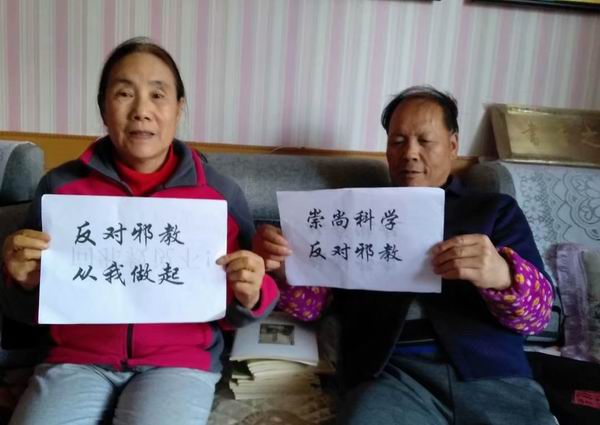 反对邪教
从我做起
崇尚科学
反对邪教